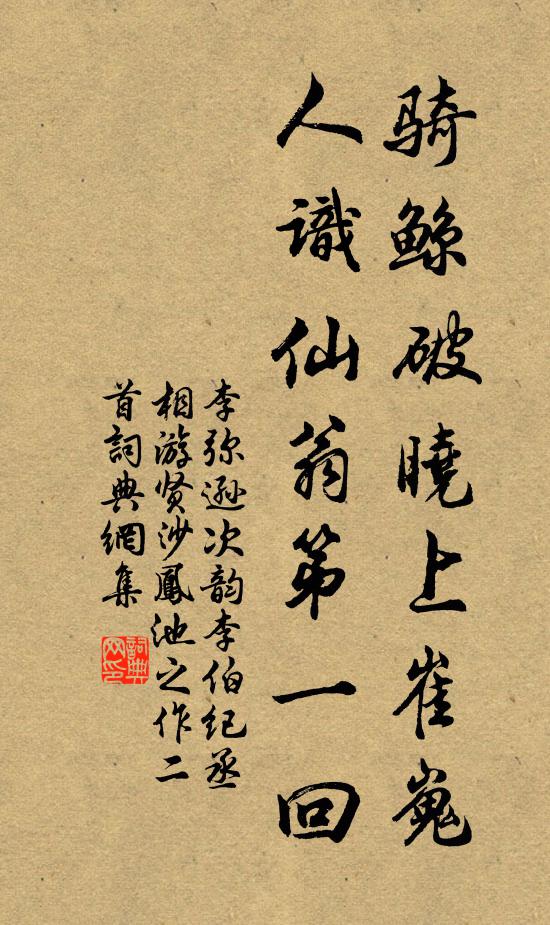 骑鲸破曉上崔嵬
人識仙翁第一回
李弥遜次韵李伯纪丞
相游贤沙鳳池之作二
首詞典網集
詞典
网印